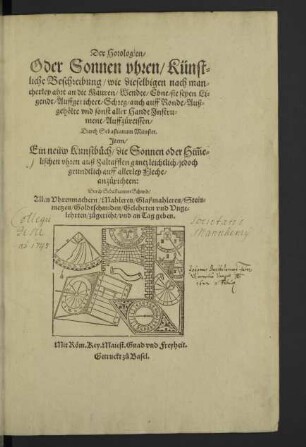 Der Horologien/
Oder Sonnen vhren/ Künst-
liche Beschreibung/ wie dieselbigen nach man-
cherley ahrt an die Mauren/ Wendte/ Ebne sie seyen Li-
gende/ Auffgerichtet/ Schreg/ auch auff Ronde/ Auß-
gehölte vnd sonst aller Handt Instru-
mente/ Auffzureissen/
Durch Sebastianum Münster.
Item/
Ein neüw Kunstbüch/ die Sonnen oder Himelischen vhren auß
gantz leichtlich/ jedoch
grundtlich auff allerley Fleche
anzürichten:
Durch Sebastianum Schmid/
Allen Vhrenmachern/ Mahleren/ Glaßmahleren/ Stein-
metzen/ Goldtschmiden/ Gelehrten vnd Vnge-
lehrten/ zügericht/ vnd an Tag geben.
Collegii
Societatis
Mannhemii
Mit Röm. Key. Maiest. Gnad vnd Freyheit.
Getruckt zü Basel.